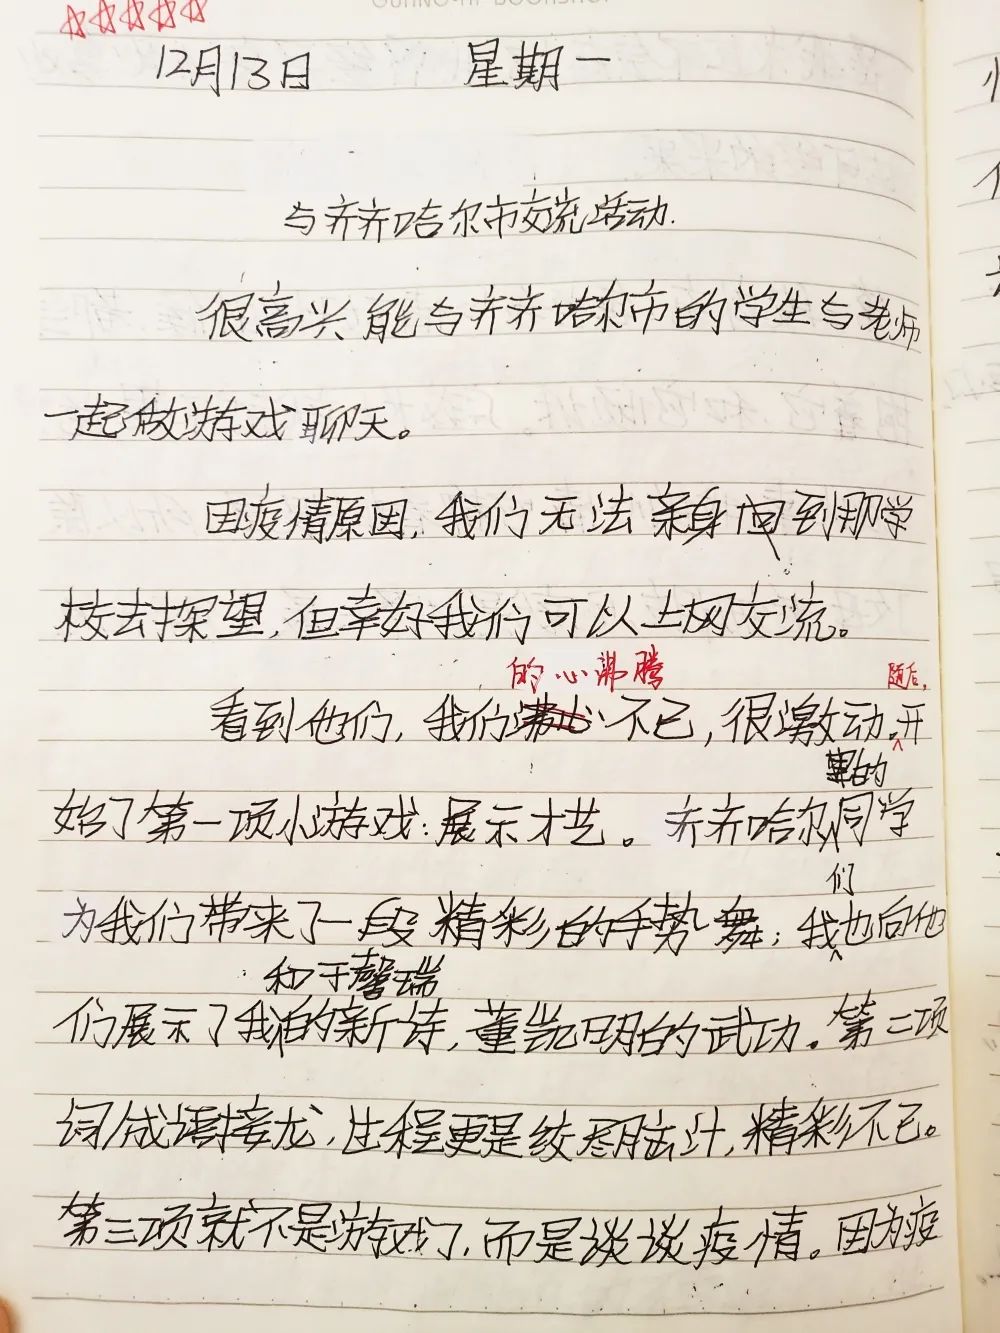 12月13日 星期一
与齐齐哈尔市交流活动.
很高兴能与齐齐哈尔市的学生与老师
一起做游戏聊天。
因疫情原因,我们无法亲身到那学
校去探望,但幸好我们可以上网交流。
的心沸腾 随后,
看到他们,我们不已,很激动.开
里的
始了第一项小游戏:展示才艺。齐齐哈尔同学
们
为我们带来了一段精彩的手势舞;我也向他
和于馨瑞
们展示了我的新诗,董凯明的武功.第二项
词/成语接龙,过程更是绞尽脑汁,精彩不已。
第三项就不是游戏了,而是谈谈疫情。因为疫